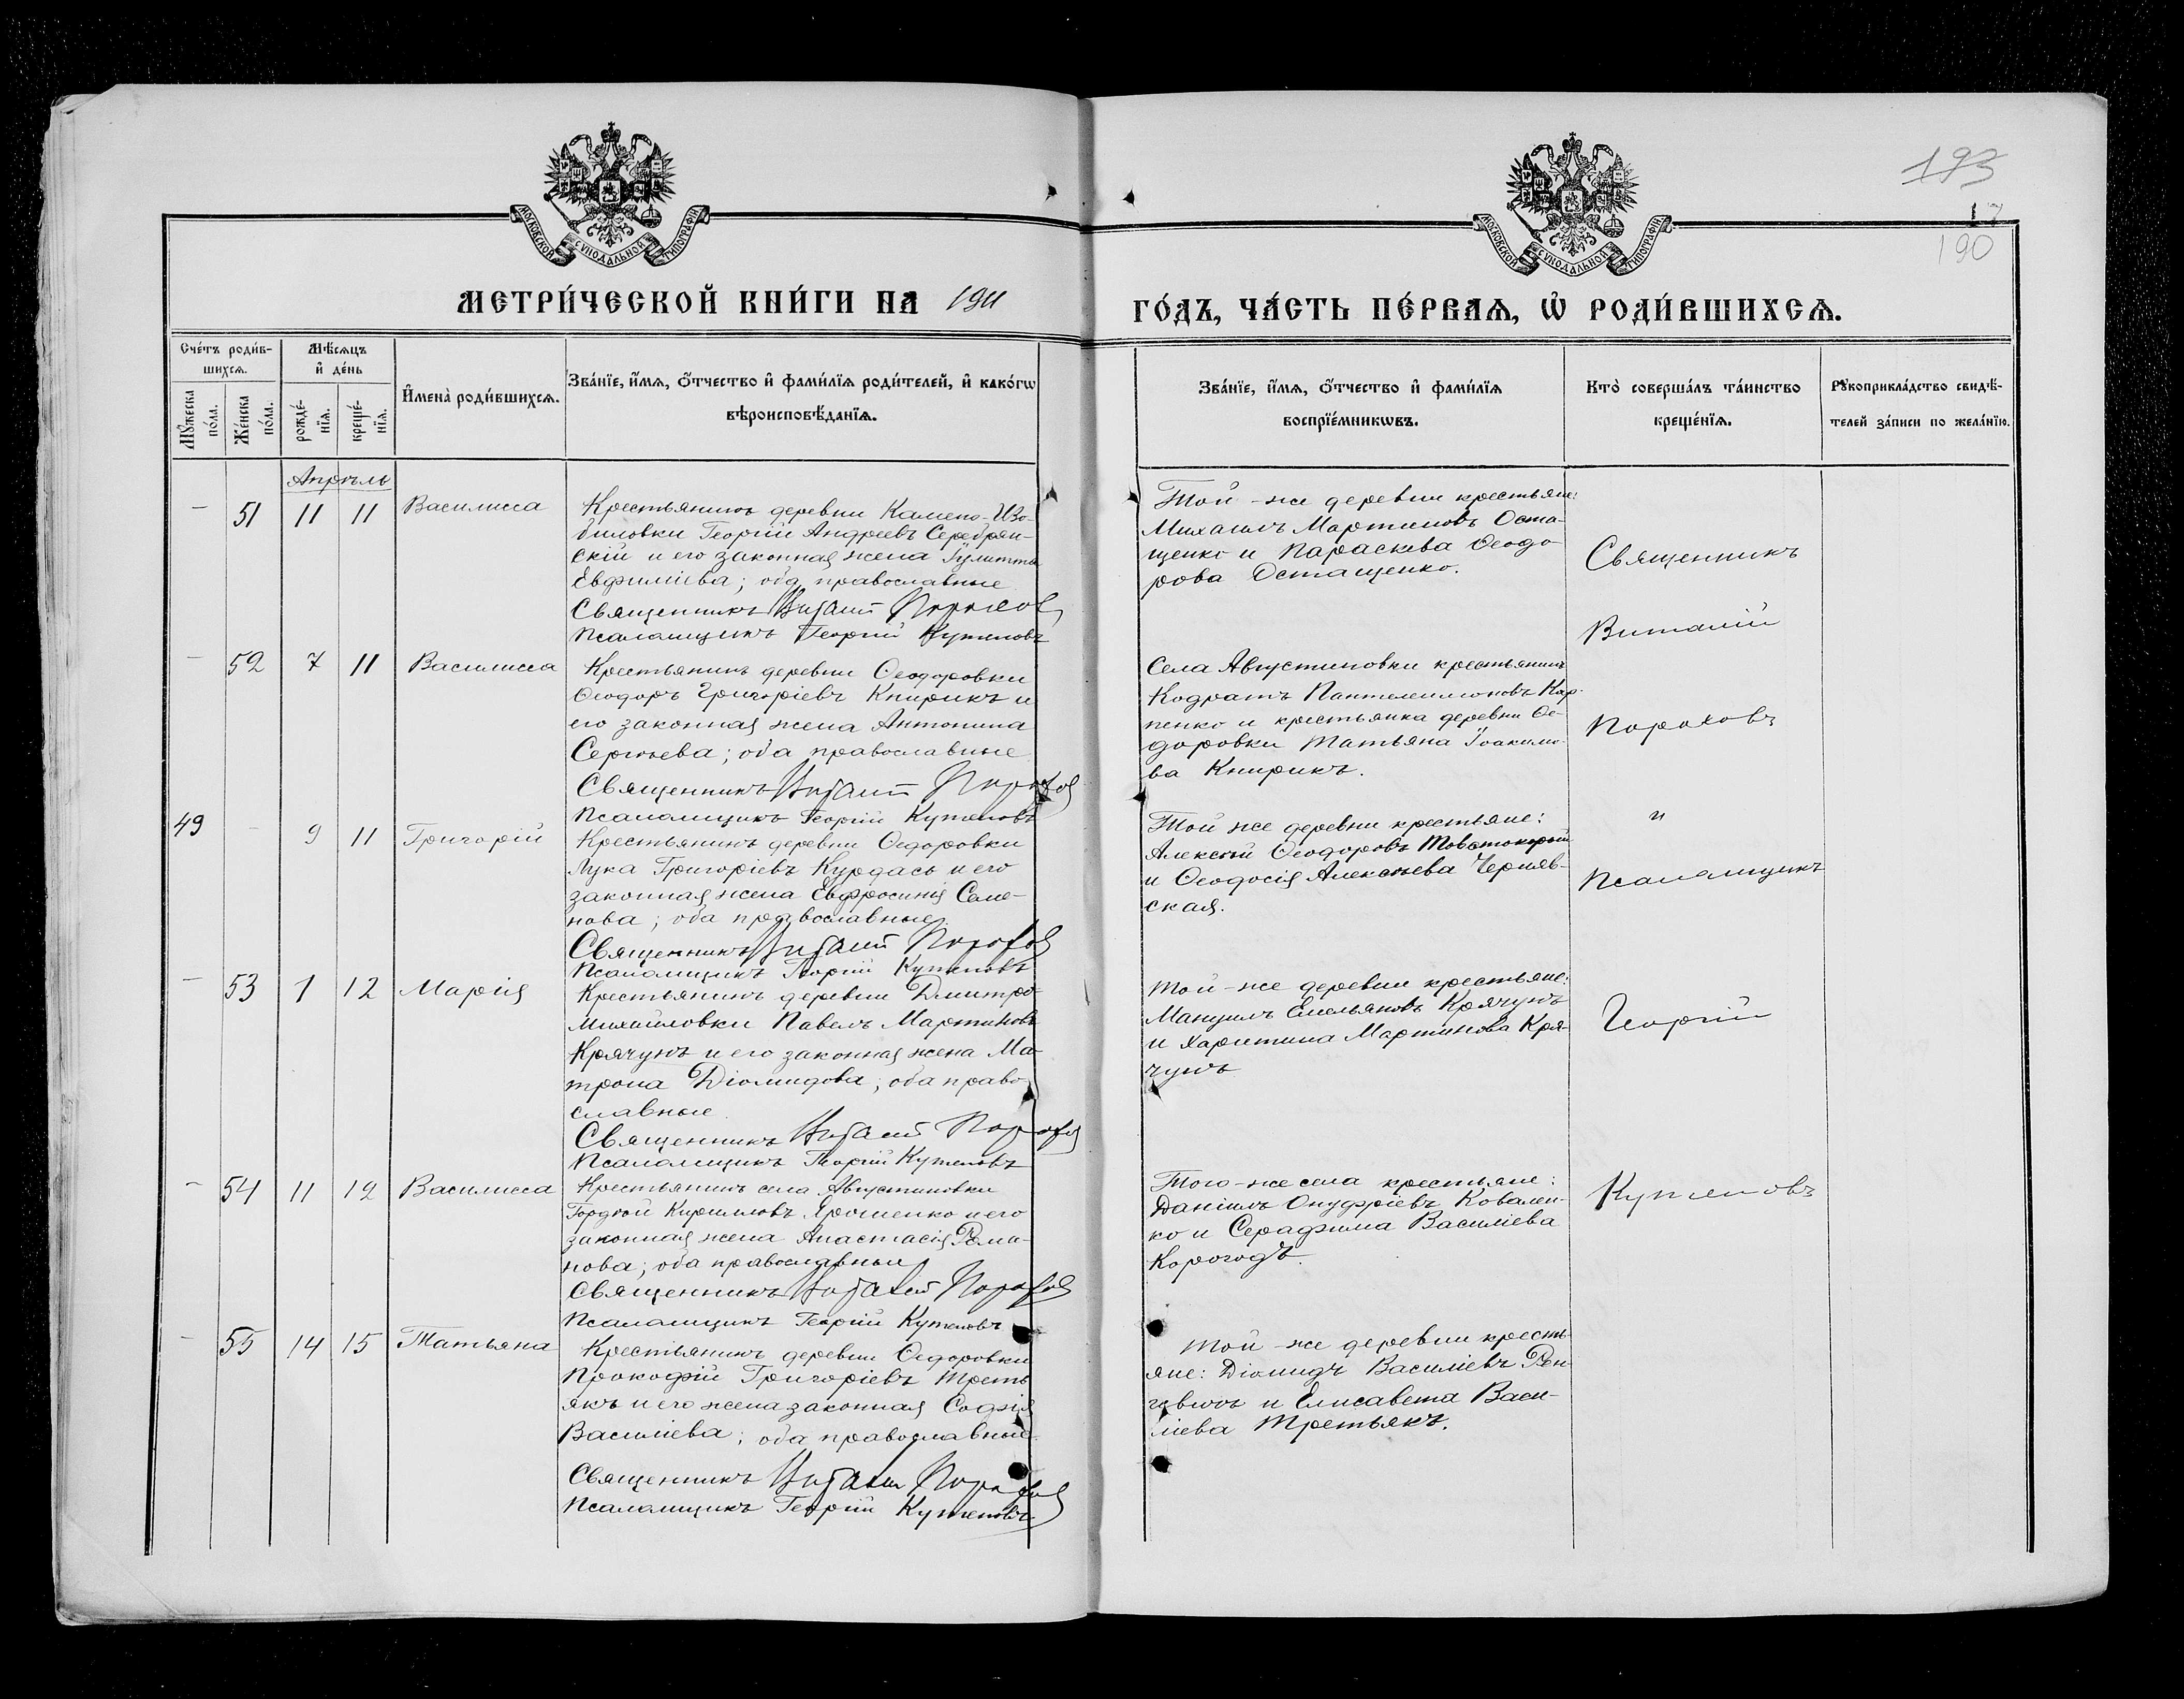 МОСКОВСКОЙ СѴНОДАЛЬНОЙ ТИПОГРАФІИ
МОСКОВСКОЙ СѴНОДАЛЬНОЙ ТИПОГРАФІИ
193
17
190
МЕТРИ́ЧЕСКОЙ КНИ́ГИ НА 1911 ГО́ДЪ, ЧА́СТЬ ПЕ́РВАѦ, Ѡ҆ РОДИ́ВШИХСѦ.
Сче́тъ роди́в-
шихсѧ.
Мѣ́сѧцъ
и҆ де́нь
Мꙋ́жеска
по́ла.
Же́нска
по́ла.
рожде́-
нїѧ.
креще́-
нїѧ.
И҆мена̀ роди́вшихсѧ.
Зва́нїе, и҆́мѧ, ѻ҆́тчество и҆ фами́лїѧ роди́телей, и҆ како́гѡ
вѣроисповѣ́данїѧ.
Зва́нїе, и҆́мѧ, ѻ҆́тчество и҆ фами́лїѧ
воспрїе́мникѡвъ.
Кто̀ соверша́лъ та́инство
креще́нїѧ.
Рꙋкоприкла́дство свидѣ́-
телей за́писи по жела́нїю.
Апрѣль
– 51 11 11 Василисса
Крестьянинъ деревни Камено-Изо-
биловки Георгій Андреевъ Серебрян-
скій и его законная жена Іулитта
Евфиміева; оба православные
Священникъ Виталій Пороховъ
Псаломщикъ Георгій Кутеповъ
Той-же деревни крестьяне:
Михаилъ Мартиновъ Оста-
щенко и Параскева Ѳеодо-
рова Остащенко.
– 52 7 11 Василисса
Крестьянинъ деревни Ѳеодоровки
Ѳеодоръ Григоріевъ Книрикъ и
его законная жена Антонина
Сергѣева; оба православные
Священникъ Виталій Пороховъ
Псаломщикъ Георгій Кутеповъ
Села Августиновки крестьянинъ
Кодратъ Пантелеимоновъ Кар-
пенко и крестьянка деревни Ѳе-
доровки Татьяна Іоакимо-
ва Книрикъ.
49 – 9 11 Григорій
Крестьянинъ деревни Ѳедоровки
Лука Григоріевъ Курдась и его
законная жена Евфросинія Семе-
нова; оба православные.
Священникъ Виталій Пороховъ
Псаломщикъ Георгій Кутеповъ
Той же деревни крестьяне:
Алексѣй Ѳеодоровъ
и Ѳеодосія Алексѣева Черняв-
ская.
– 53 1 12 Марія
Крестьянинъ деревни Дмитро-
Михайловки Павелъ Мартиновъ
Крячунъ и его законная жена Ма-
трона Діомидова; оба право-
славные.
Священникъ Виталій Пороховъ
Псаломщикъ Георгій Кутеповъ
Той-же деревни крестьяне:
Мануилъ Емельяновъ Крячунъ
и Харитина Мартинова Кря-
чунъ
– 54 11 12 Василисса
Крестьянинъ села Августиновки
Гордѣй Кирилловъ Ярошенко и его
законная жена Анастасія Рома-
нова; оба православные
Священникъ Виталій Пороховъ
Псаломщикъ Георгій Кутеповъ
Того-же села крестьяне:
Даніилъ Онуфріевъ Ковален-
ко и Серафима Василіева
Корогодъ.
– 55 14 15 Татьяна
Крестьянинъ деревни Ѳедоровки
Прокофій Григоріевъ Треть-
якъ и его жена законная Софія
Василіева; оба православные
Священникъ Виталій Пороховъ
Псаломщикъ Георгій Кутеповъ.
Той-же деревни кресть-
яне: Діомидъ Василіевъ
и Елисавета Васи-
ліева Третьякъ.
Священникъ
Виталій
Пороховъ
и
Псаломщикъ
Георгій
Кутеповъ